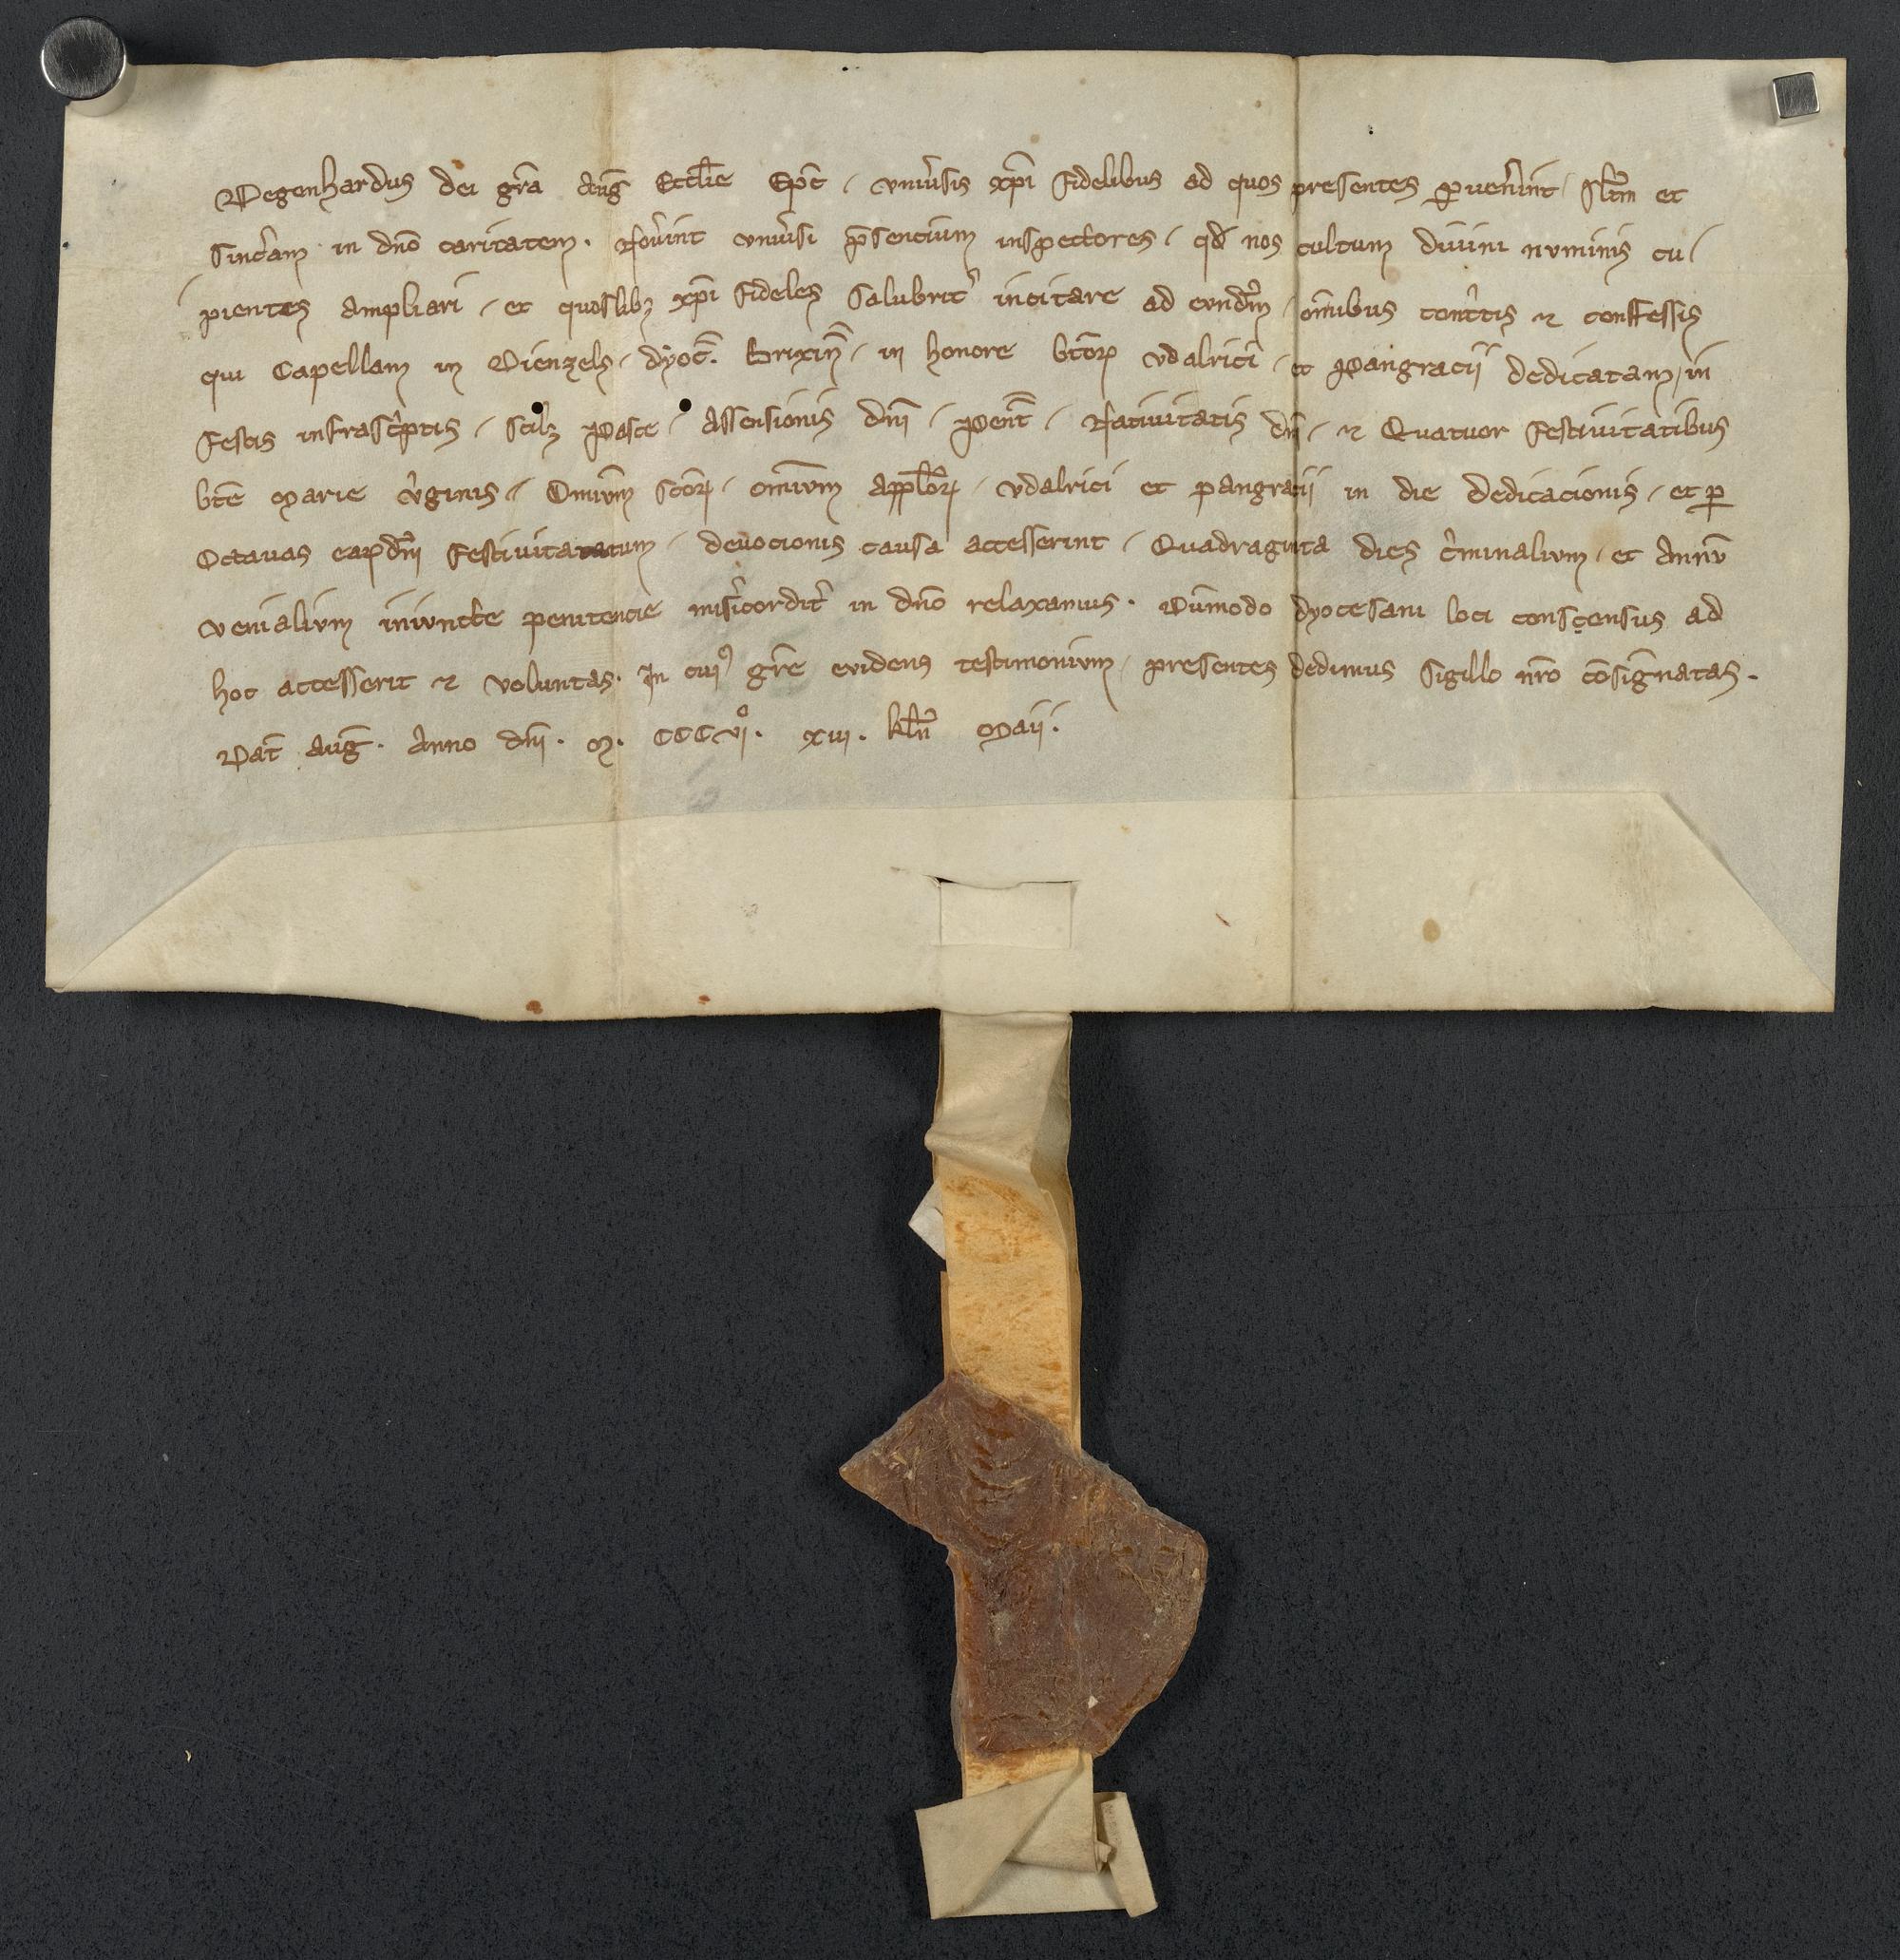 Degenhardus dei gr̄a auḡ Eccl̄ie Ep̄c / vniv̾sis xp̄i fidelibus ad quos presentes ꝑuen̾int / sl̄tm et
sinc̾am in dn̄o caritatem . Nov̾int vniv̾si p̄sencium inspectores / qd̄ nos cultum diuini numinis cu/
pientes ampliari / et quoslibꝫ xp̄i fideles salubrit̾ incitare ad eundē / om̄ibus cont̾tis ⁊ conffessis
qui Capellam in Dienzels / dyoc̄. Brixin̄ / in honore btōꝝ vdalrici / et Pangracij dedicatam / in
festis infrasc̾ptis / scilꝫ Pasce / Assensionis dn̄i / Pent̄ / Natiuitatis dn̄i / ⁊ Quatuor festiuitatibus
bt̄e Marie v̾ginis / Omnivm̄ sc̄oꝝ / om̄ivm appl̄oꝝ / vdalrici et pangracij in die dedicacionis / et ꝑ
Octauas earꝝdm̄ festiuitatatum / deuocionis causa accesserint / Quadraginta dies c̾minalium / et annū
venialivm iniuncte penitencie mis̾icordit̾ in dn̄o relaxamus . Dūmodo dyocesani loci consc̣ensus ad
hoc accesserit ⁊ voluntas . In cuiꝰ gr̄e euidens testimonivm / presentes dedimus sigillo nr̄o cōsignatas .
Dat̄ auḡ . Anno dn̄i . M . CCCvi° . xiii . kl̄n Maij .